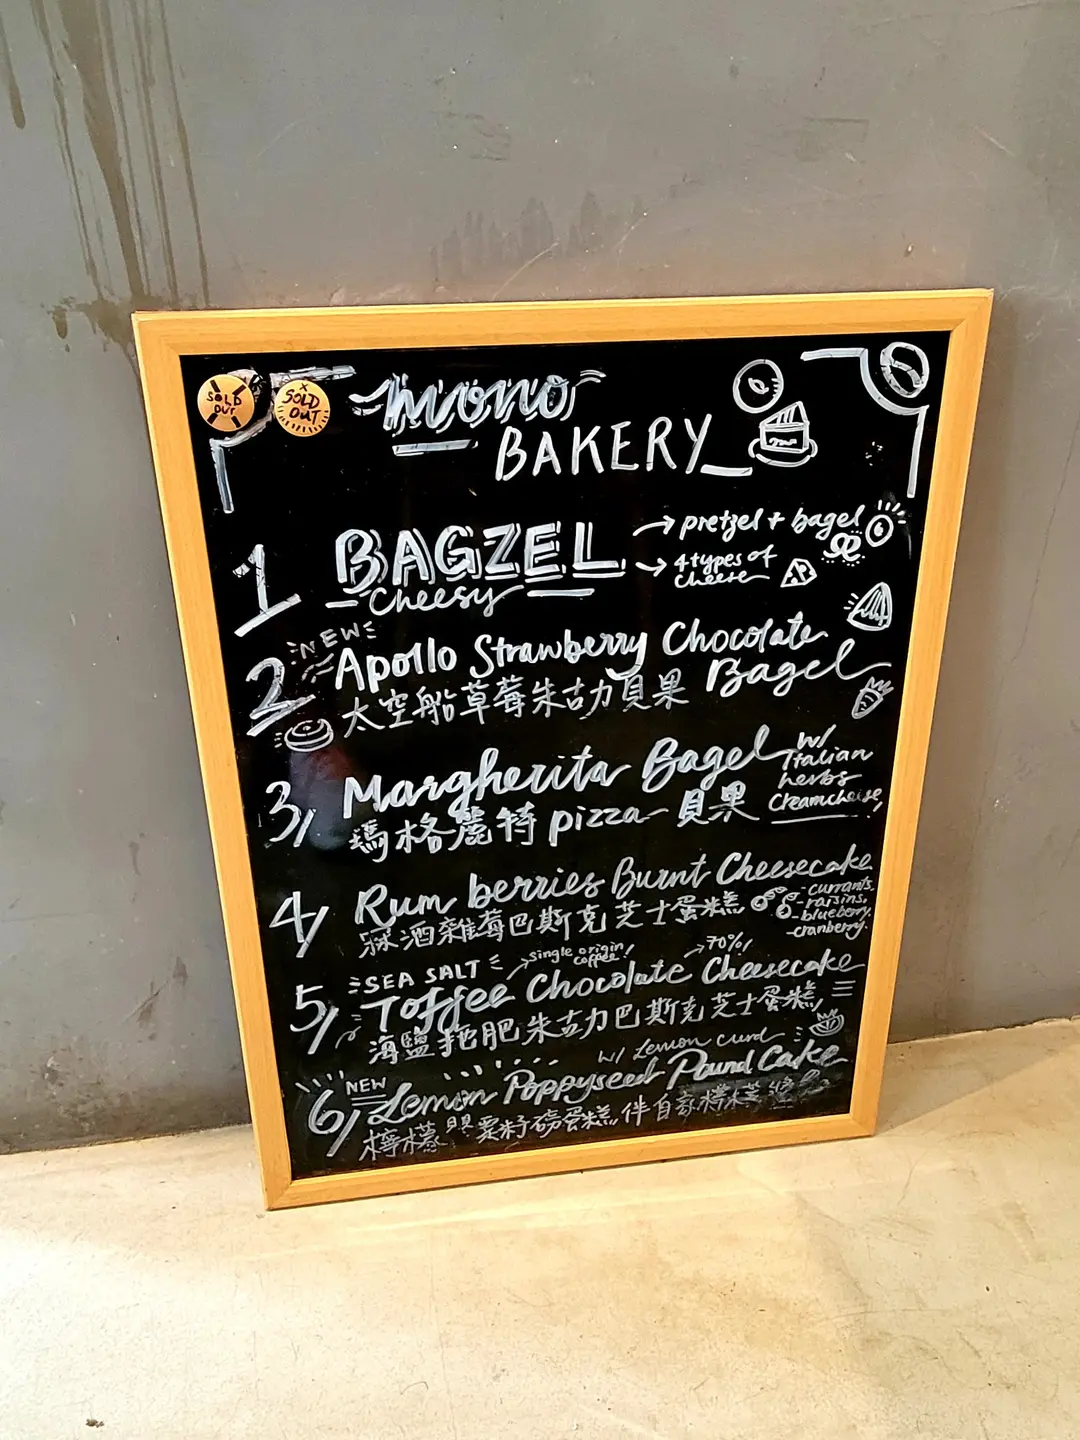 SOLD OUT
SOLD OUT
mono
BAKERY
1 BAGZEL
→ pretzel + bagel
→ 4 types of cheese
Cheesy
NEW
2 Apollo Strawberry Chocolate Bagel
太空船草莓朱古力貝果
3/ Margherita Bagel
w/ Italian herbs creamcheese!
瑪格麗特 pizza 貝果
4/ Rum berries Burnt Cheesecake
酒雜莓巴斯克芝士蛋糕
- currants,
- raisins,
- blueberry,
- cranberry.
SEA SALT
→ single origin coffee!
→ 70%!
5/ Toffee Chocolate Cheesecake
海鹽拖肥朱古力巴斯克芝士蛋糕
w/ Lemon curd
NEW
6/ Lemon Poppyseed Pound Cake
檸檬罌粟籽磅蛋糕伴自家檸檬醬